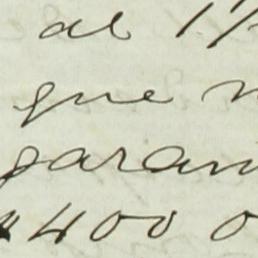 al 1
que
garan
$400 0